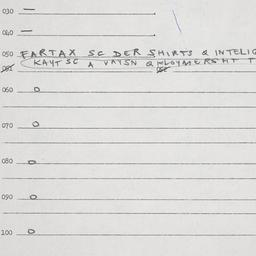 030 —
040 —
050 FARTAX SC DER SHIRTS & INTELIG
051 KAYT SC A VATSN &
060 0
070 0
080 0
090 0
100 0